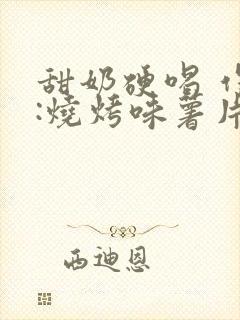 甜奶硬喝
:燒烤味薯片
西迪恩